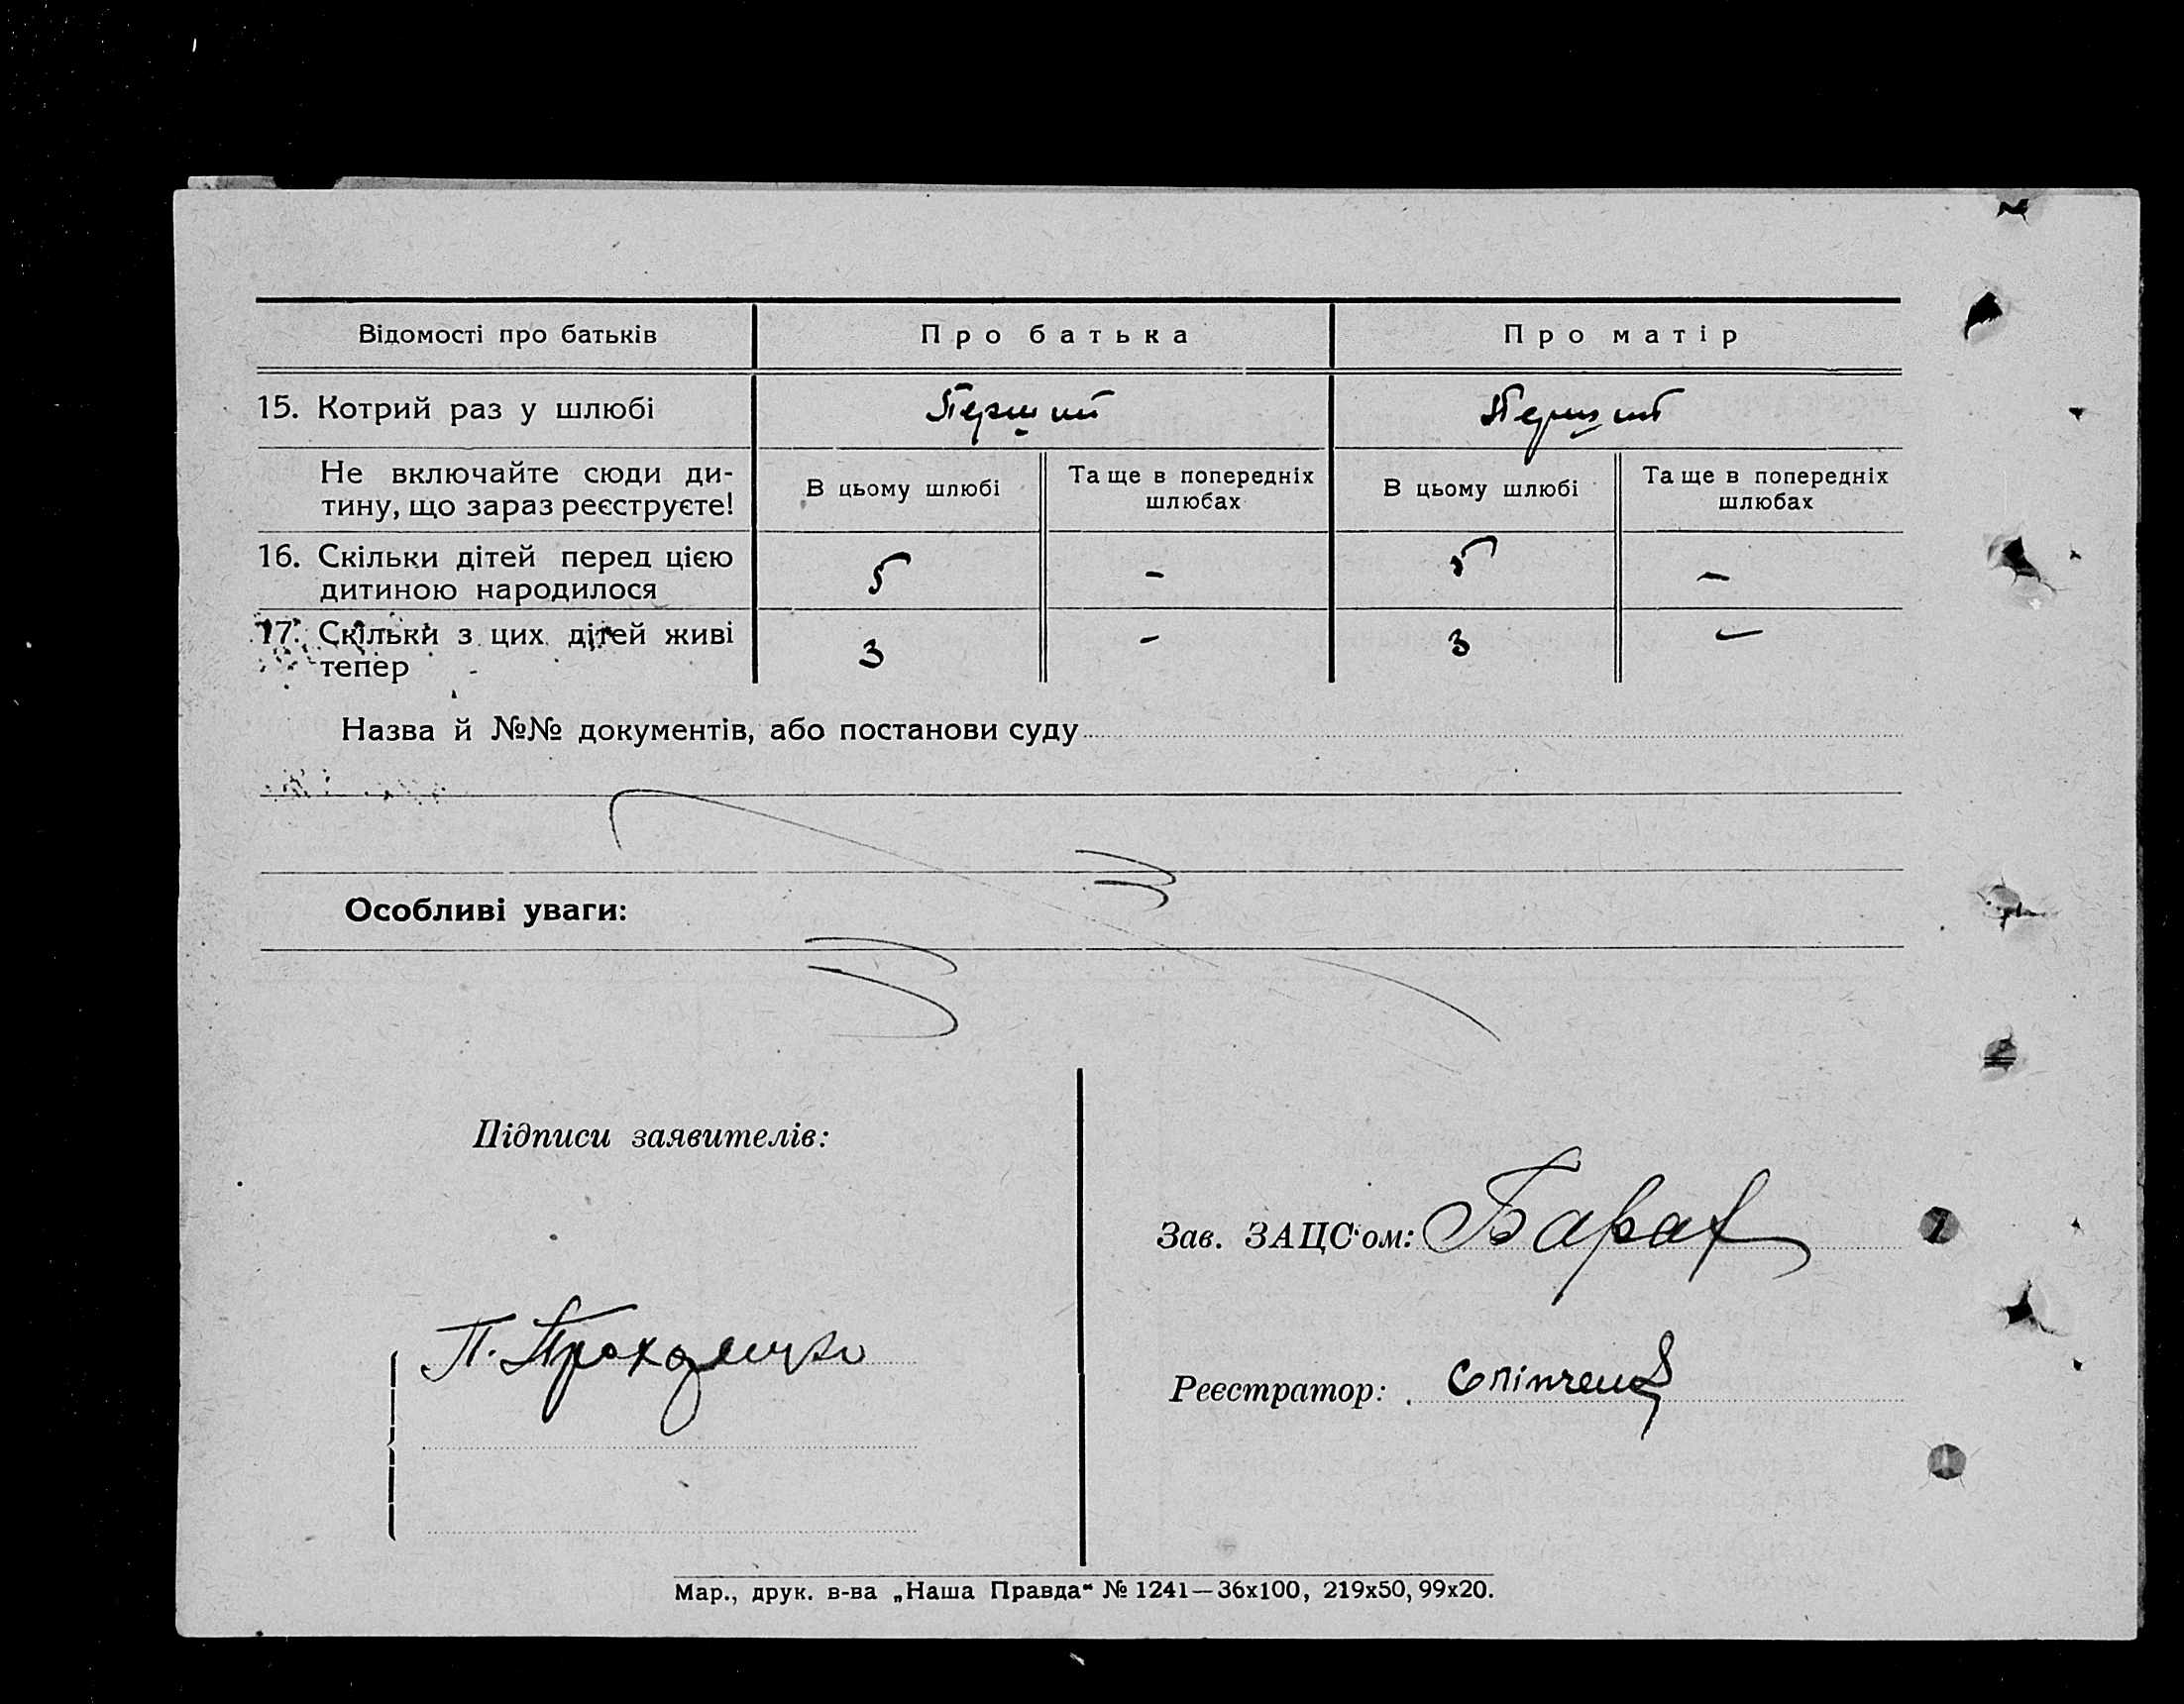 Відомості про батьків Про батька Про матір
15. Котрий раз у шлюбі Перший Перший
Не включайте сюди ди-
тину, що зараз реєструєте!
В цьому шлюбі
Та ще в попередніх
шлюбах
В цьому шлюбі
Та ще в попередніх
шлюбах
16. Скільки дітей перед цією
дитиною народилося
5 - 5 -
17. Скільки з цих дітей живі
тепер
3 - 3 -
Назва й №№ документів, або постанови суду
Особливі уваги:
Підписи заявителів:
П.
Зав. ЗАЦС'ом:
Реєстратор:
Мар., друк. в-ва „Наша Правда“ № 1241—36x100, 219x50, 99x20.